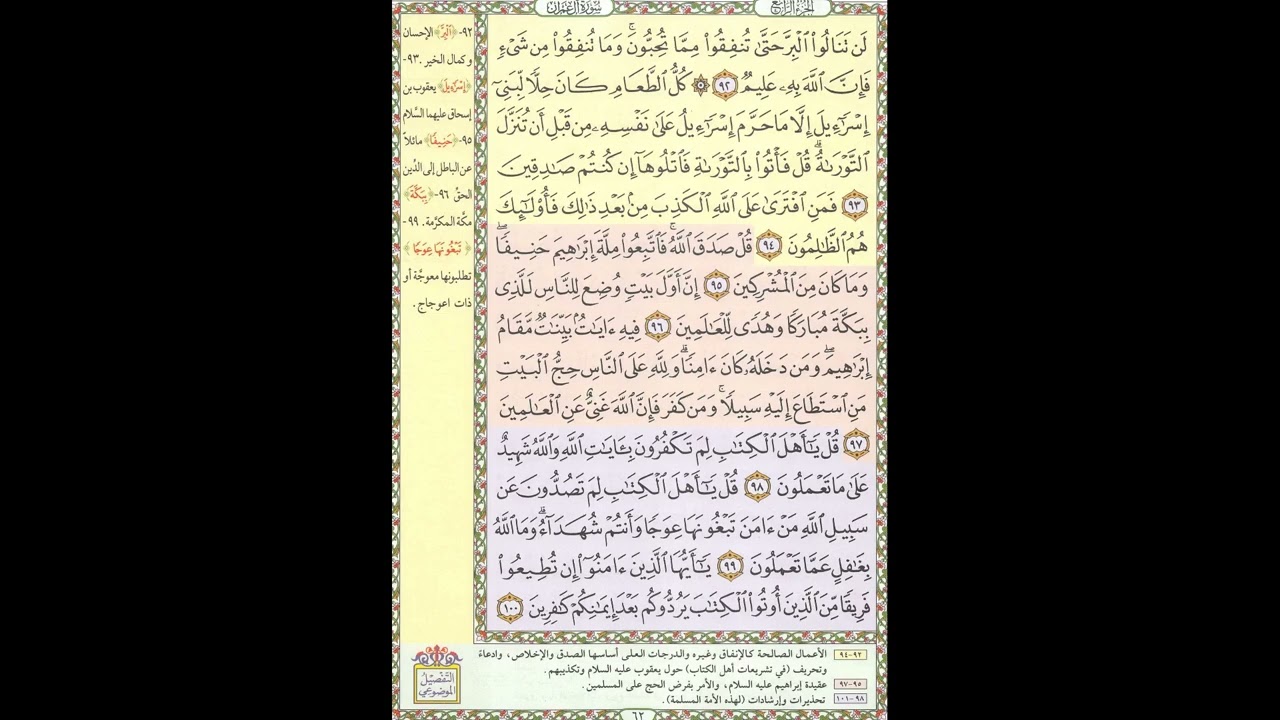 الجزء الرابع
سورة آل عمران
لَن تَنَالُوا۟ ٱلْبِرَّ حَتَّىٰ تُنفِقُوا۟ مِمَّا تُحِبُّونَ ۚ وَمَا تُنفِقُوا۟ مِن شَىْءٍ
فَإِنَّ ٱللَّهَ بِهِۦ عَلِيمٌ ٩٢ ۞ كُلُّ ٱلطَّعَامِ كَانَ حِلًّا لِّبَنِىٓ
إِسْرَٰٓءِيلَ إِلَّا مَا حَرَّمَ إِسْرَٰٓءِيلُ عَلَىٰ نَفْسِهِۦ مِن قَبْلِ أَن تُنَزَّلَ
ٱلتَّوْرَىٰةُ ۗ قُلْ فَأْتُوا۟ بِٱلتَّوْرَىٰةِ فَٱتْلُوهَآ إِن كُنتُمْ صَـٰدِقِينَ
٩٣ فَمَنِ ٱفْتَرَىٰ عَلَى ٱللَّهِ ٱلْكَذِبَ مِنۢ بَعْدِ ذَٰلِكَ فَأُو۟لَـٰٓئِكَ
هُمُ ٱلظَّـٰلِمُونَ ٩٤ قُلْ صَدَقَ ٱللَّهُ ۗ فَٱتَّبِعُوا۟ مِلَّةَ إِبْرَٰهِيمَ حَنِيفًا ۖ
وَمَا كَانَ مِنَ ٱلْمُشْرِكِينَ ٩٥ إِنَّ أَوَّلَ بَيْتٍ وُضِعَ لِلنَّاسِ لَلَّذِى
بِبَكَّةَ مُبَارَكًا وَهُدًى لِّلْعَـٰلَمِينَ ٩٦ فِيهِ ءَايَـٰتٌۢ بَيِّنَـٰتٌ مَّقَامُ
إِبْرَٰهِيمَ ۖ وَمَن دَخَلَهُۥ كَانَ ءَامِنًا ۗ وَلِلَّهِ عَلَى ٱلنَّاسِ حِجُّ ٱلْبَيْتِ
مَنِ ٱسْتَطَاعَ إِلَيْهِ سَبِيلًا ۚ وَمَن كَفَرَ فَإِنَّ ٱللَّهَ غَنِىٌّ عَنِ ٱلْعَـٰلَمِينَ
٩٧ قُلْ يَـٰٓأَهْلَ ٱلْكِتَـٰبِ لِمَ تَكْفُرُونَ بِـَٔايَـٰتِ ٱللَّهِ وَٱللَّهُ شَهِيدٌ
عَلَىٰ مَا تَعْمَلُونَ ٩٨ قُلْ يَـٰٓأَهْلَ ٱلْكِتَـٰبِ لِمَ تَصُدُّونَ عَن
سَبِيلِ ٱللَّهِ مَنْ ءَامَنَ تَبْغُونَهَا عِوَجًا وَأَنتُمْ شُهَدَآءُ ۗ وَمَا ٱللَّهُ
بِغَـٰفِلٍ عَمَّا تَعْمَلُونَ ٩٩ يَـٰٓأَيُّهَا ٱلَّذِينَ ءَامَنُوٓا۟ إِن تُطِيعُوا۟
فَرِيقًا مِّنَ ٱلَّذِينَ أُوتُوا۟ ٱلْكِتَـٰبَ يَرُدُّوكُم بَعْدَ إِيمَـٰنِكُمْ كَـٰفِرِينَ ١٠٠
٩٢- ﴿ٱلْبِرَّ﴾ الإحسان
وكمال الخير. ٩٣-
﴿إِسْرَٰٓءِيلُ﴾ يعقوب بن
إسحاق عليهما السَّلام
٩٥- ﴿حَنِيفًا﴾ مائلاً
عن الباطل إلى الدِّين
الحق ٩٦- ﴿بِبَكَّةَ﴾
مكَّة المكرَّمة. ٩٩-
﴿تَبْغُونَهَا عِوَجًا﴾
تطلبونها معوجَّة أو
ذات اعوجاج.
٩٢-٩٤ الأعمال الصالحة كالإنفاق وغيره والدرجات العلى أساسها الصدق والإخلاص، وادعاء
وتحريف (في تشريعات أهل الكتاب) حول يعقوب عليه السلام وتكذيبهم.
٩٥-٩٧ عقيدة إبراهيم عليه السلام، والأمر بفرض الحج على المسلمين.
٩٨-١٠١ تحذيرات وإرشادات (لهذه الأمة المسلمة).
التفصيل
الموضوعي
٦٢